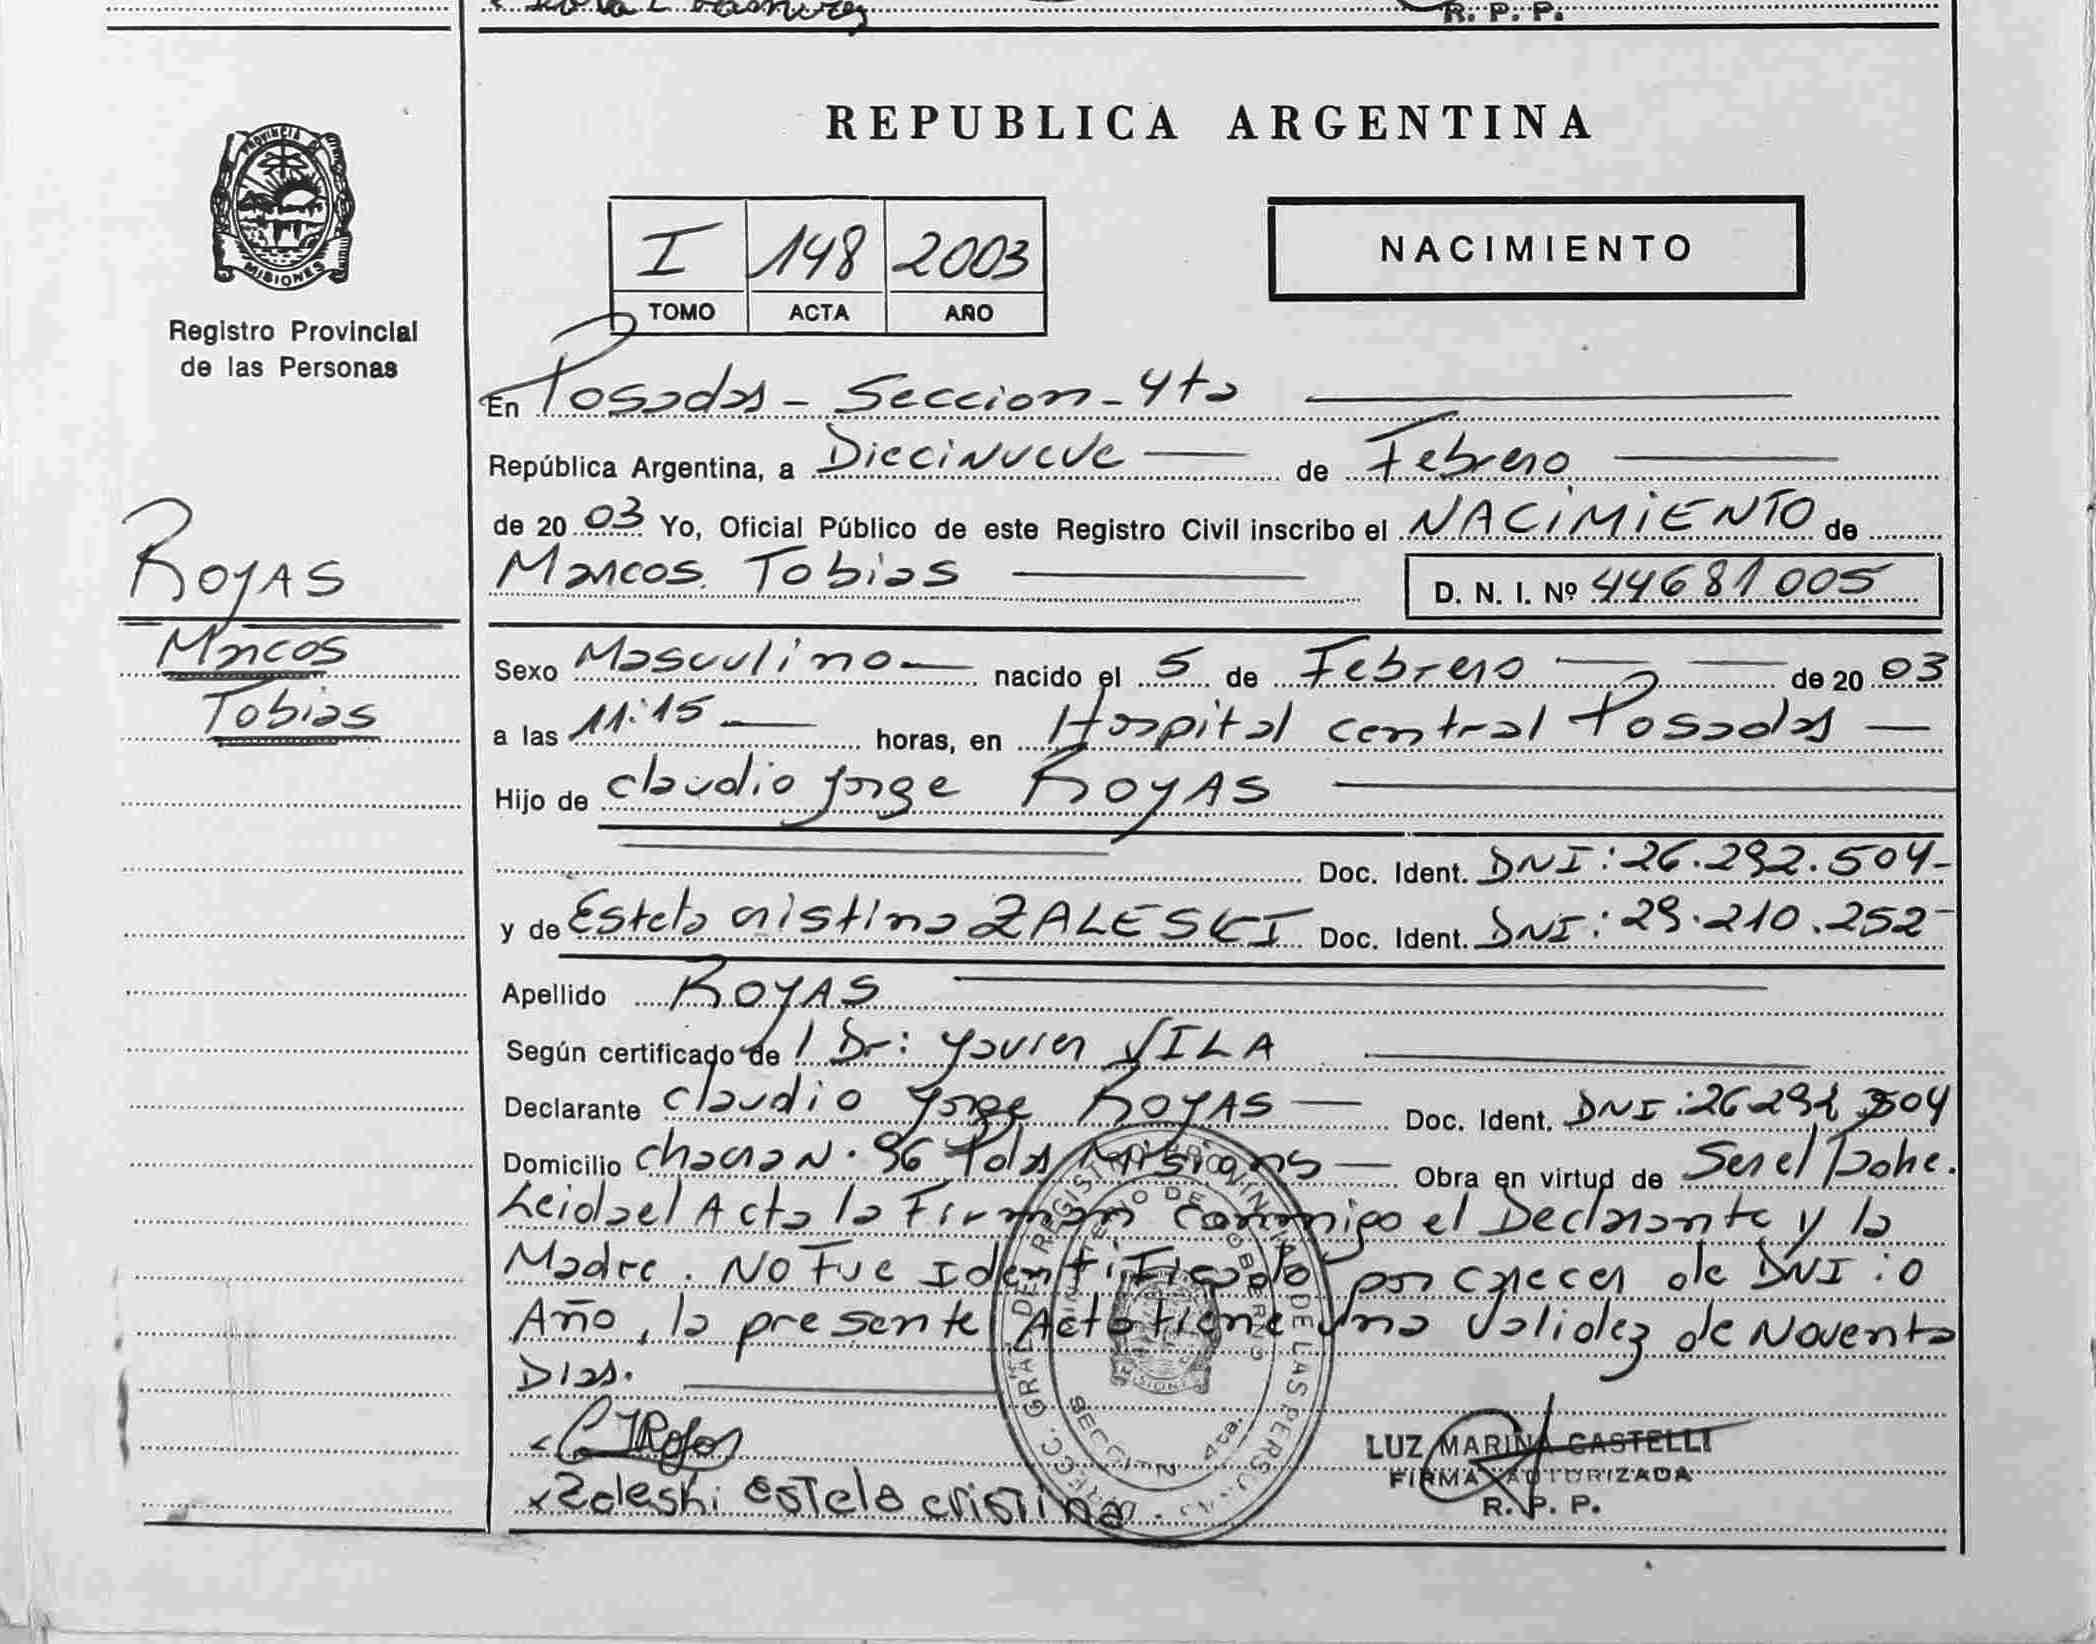 R. P. P.
PROVINCIA DE
MISIONES
Registro Provincial
de las Personas
REPUBLICA ARGENTINA
I 148 2003
TOMO ACTA AÑO
NACIMIENTO
En Posadas - Seccion - 4ta
República Argentina, a Diecinueve de Febrero
de 20 03 Yo, Oficial Público de este Registro Civil inscribo el NACIMIENTO de
Marcos Tobias D. N. I. Nº 44681005
ROJAS
Marcos
Tobias
Sexo Masculino nacido el 5 de Febrero de 20 03
a las 11:15 horas, en Hospital central Posadas
Hijo de Claudio Jorge ROJAS
Doc. Ident. DNI: 26.292.504-
y de Estela Cristina ZALESKI Doc. Ident. DNI: 29.210.252-
Apellido ROJAS
Según certificado de / Dr: Javier VILA
Declarante Claudio Jorge ROJAS Doc. Ident. DNI: 26292504
Domicilio Chacra N. 96 Pdas Misiones Obra en virtud de Ser el Padre.
Leida el Acta la Firman conmigo el Declarante y la
Madre. No Fue Identificado por carecer de DNI: 0
Año, la presente Acta tiene una validez de Noventa
Dias.
DIRECC. GRAL DEL REGISTRO PROVINCIAL DE LAS PERSONAS
MINISTERIO DE GOBIERNO
MISIONES
SECCION 4ta.
CJRojas
x Zaleski Estela cristina
LUZ MARINA CASTELLI
FIRMA AUTORIZADA
R. P. P.